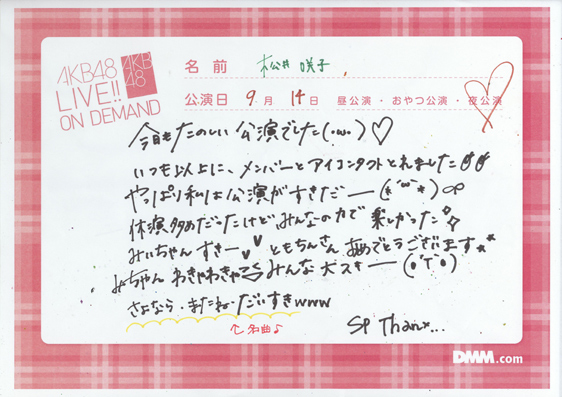 AKB48
LIVE!!
ON DEMAND
AKB
48
名前 松井 咲子
公演日 9月 14日 昼公演・おやつ公演・夜公演
今日もたのしい公演でした(・ω・)♡
いつも以上に、メンバーとアイコンタクトとれました
やっぱり私は公演がすきだー(*´ω`*)
休演多めだったけどみんなの力で楽しかった
みぃちゃんすきー ともちんさんおめでとうございます
みちゃん わきゃわきゃ みんな大スキー(о´Т`о)
さよなら・またね・だいすきwww
名曲♪
SP Thanx...
DMM.com